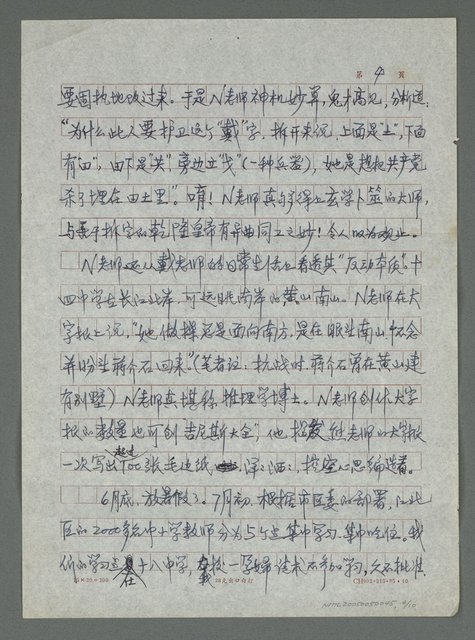 第 4 頁
要固执地改过来。于是N老师神机妙算,鬼才高见,分析道:
"为什么此人要护卫这个"戴"字,拆开来说,上面是"土",下面
有"田",由下是"共",旁边立"戈"(一种兵器),她是想把共产党
杀了埋在田土里"。唷!N老师真与得上玄学卜筮的大师,
与善于拆字的乾隆皇帝有异曲同工之妙!令人叹为观止。
N老师还从戴老师的日常生活也看透其"反动本质"。十
四中学在长江北岸,可远眺南岸的黄山南山。N老师在大
字报上说,"她做操总是面向南方,是在眺望南山,怀念
并盼望蒋介石回来"(笔者注:抗战时,蒋介石曾在黄山建
有别墅)N老师真堪称推理学博士。N老师创作大字
报的数量也可创"吉尼斯大全",他揭发熊老师的大字报
一次写出超过100张毛边纸,洋洋洒洒,挖空心思编造着。
6月底,放暑假了。7月初,根据市区委的部署,江北
区的2000多名中小学教师分为5个点集中学习,集中吃住。我
们的学习点在十八中学,我校一孕妇请求不参加学习,久不批准
15×20=300
NMTL20050050045 4/10